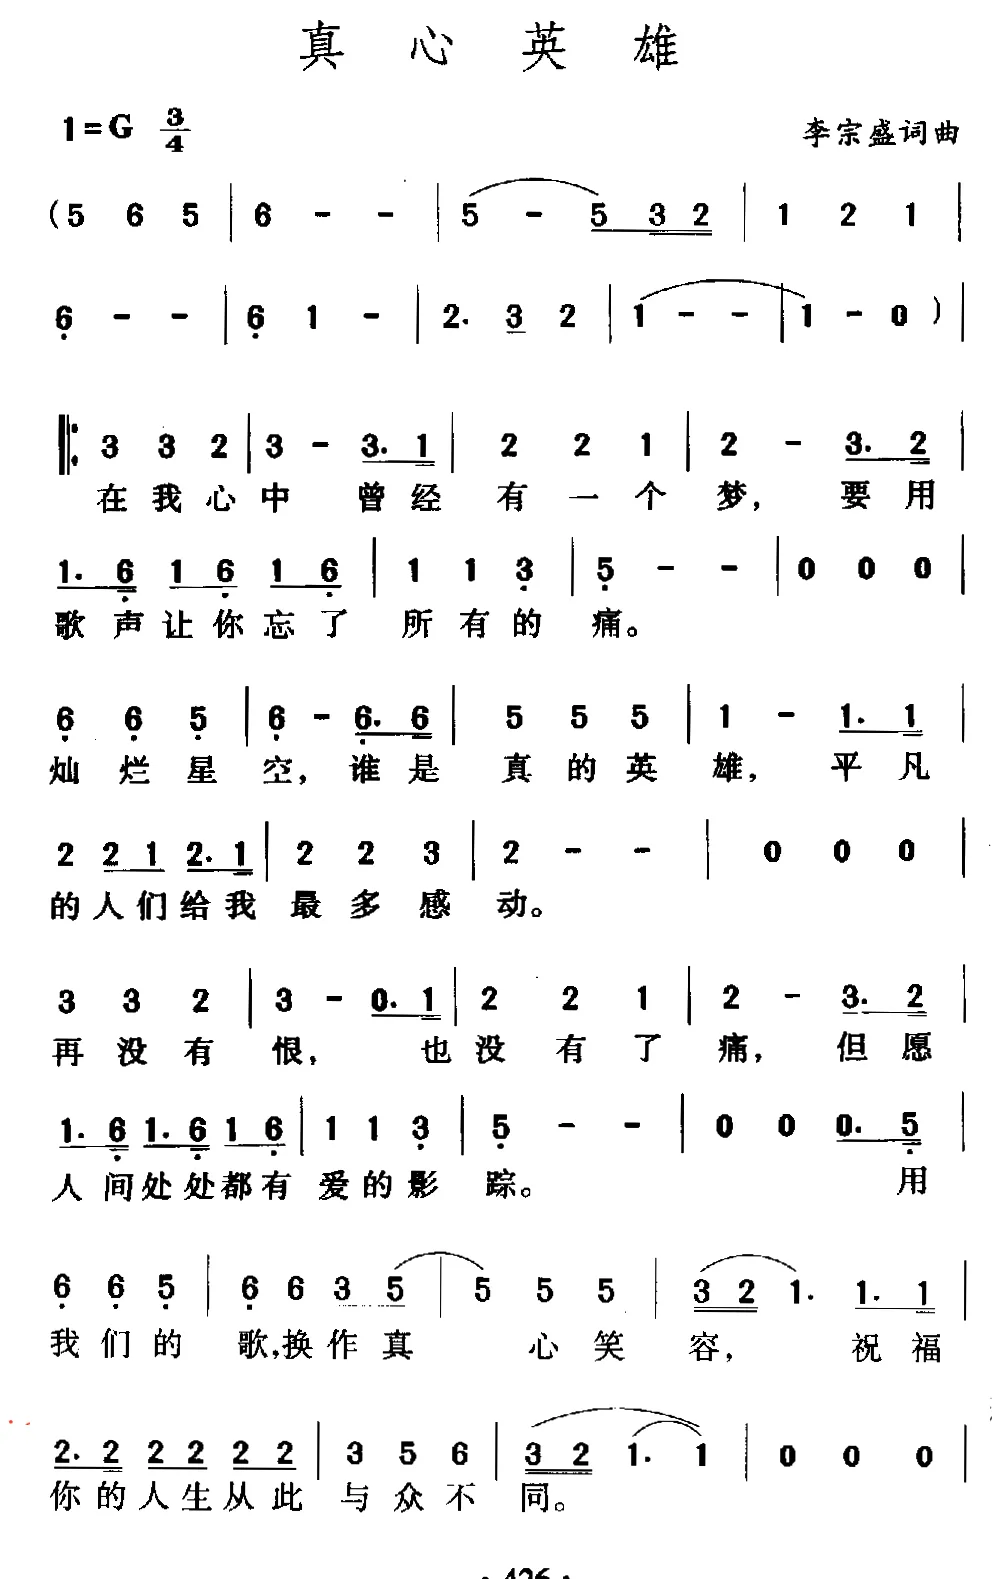 真心英雄
1=G 3/4 李宗盛词曲
(5 6 5 | 6 - - | 5 - 5 3 2 | 1 2 1 |
6 - - | 6 1 - | 2. 3 2 | 1 - - | 1 - 0 ) |
‖: 3 3 2 | 3 - 3. 1 | 2 2 1 | 2 - 3. 2 |
在我心中 曾经 有一个梦, 要用
1. 6 1 6 1 6 | 1 1 3 | 5 - - | 0 0 0 |
歌声让你忘了 所有的痛。
6 6 5 | 6 - 6. 6 | 5 5 5 | 1 - 1. 1 |
灿烂星空, 谁是 真的英雄, 平凡
2 2 1 2. 1 | 2 2 3 | 2 - - | 0 0 0 |
的人们给我 最多感动。
3 3 2 | 3 - 0. 1 | 2 2 1 | 2 - 3. 2 |
再没有恨, 也没有了痛, 但愿
1. 6 1. 6 1 6 | 1 1 3 | 5 - - | 0 0 0. 5 |
人间处处都有 爱的影踪。 用
6 6 5 | 6 6 3 5 | 5 5 5 | 3 2 1. 1. 1 |
我们的 歌,换作真 心笑容, 祝福
2. 2 2 2 2 2 | 3 5 6 | 3 2 1. 1 | 0 0 0 |
你的人生从此 与众不同。
· 426 ·